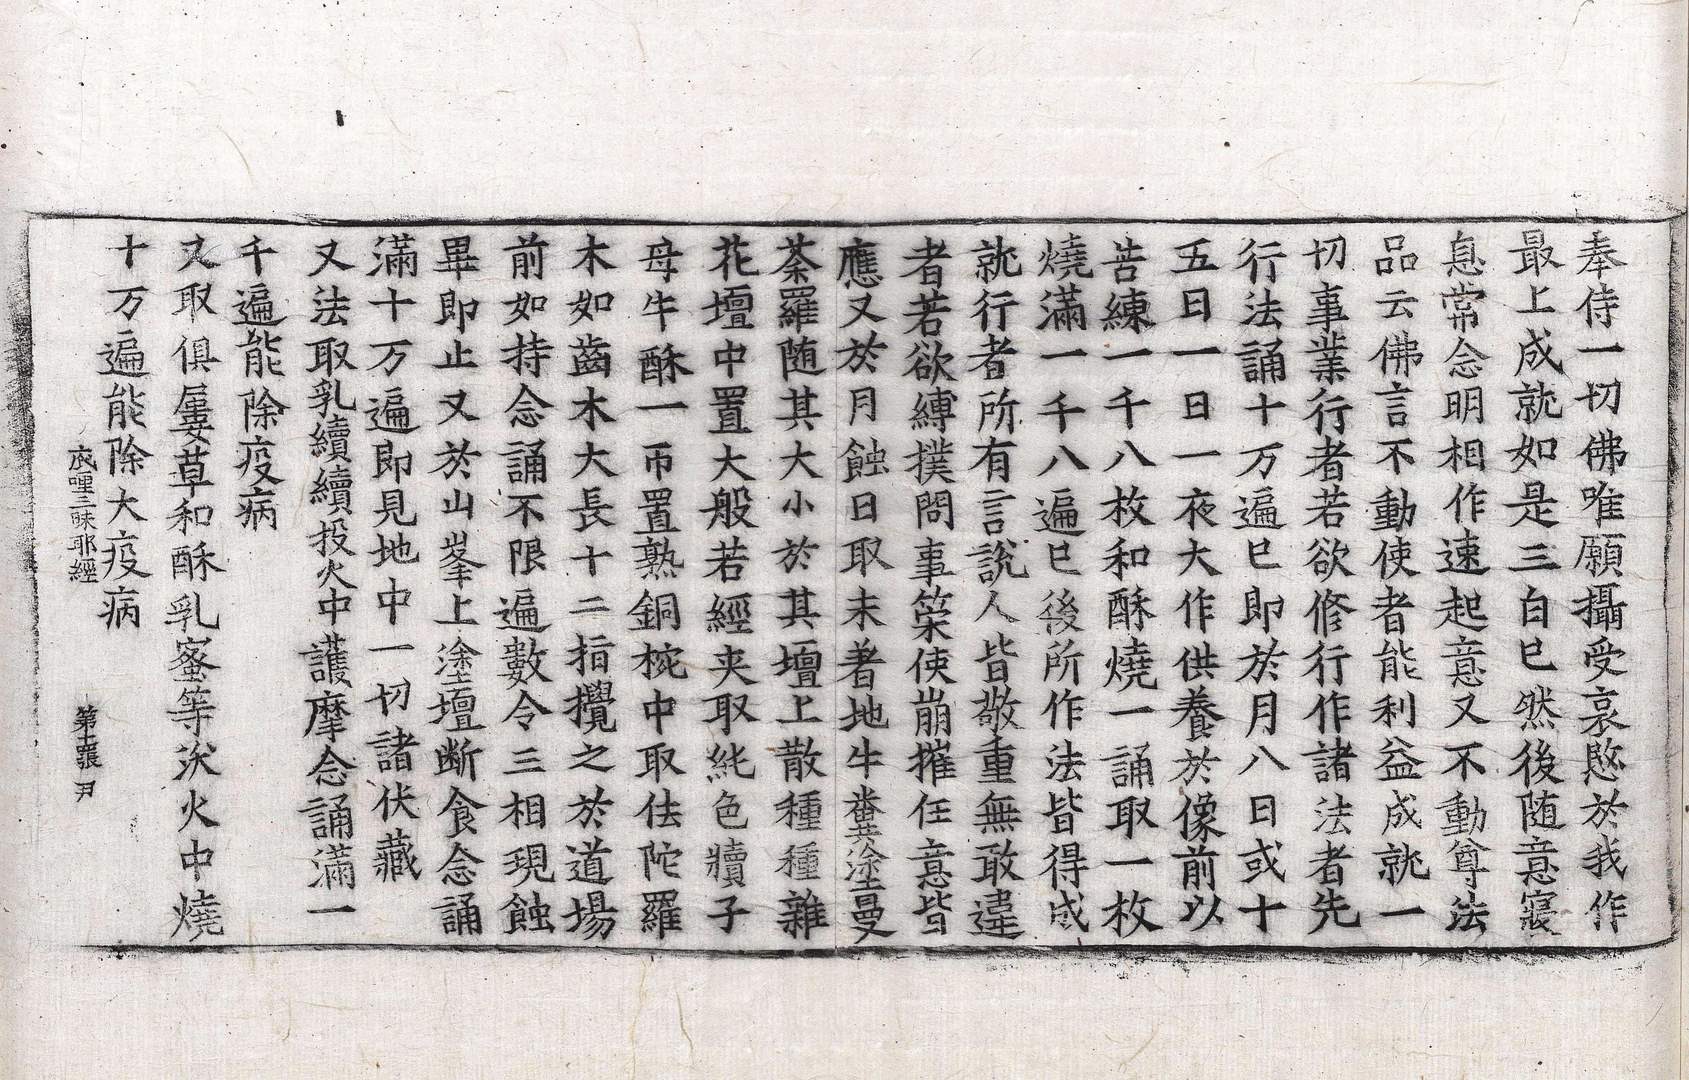 奉侍一切佛唯願攝受哀愍於我作
最上成就如是三白已然後随意寢
息常念明相作速起意又不動尊法
品云佛言不動使者能利益成就一
切事業行者若欲修行作諸法者先
行法誦十万遍已即於月八日或十
五日一日一夜大作供養於像前以
苦練一千八枚和酥燒一誦取一枚
燒滿一千八遍已後所作法皆得成
就行者所有言說人皆敬重無敢違
者若欲縛撲問事䇿使崩摧任意皆
應又於月蝕日取未著地牛糞塗曼
荼羅随其大小於其壇上散種種雜
花壇中置大般若經夹取純色犢子
母牛酥一帀置熟銅椀中取佉陀羅
木如齒木大長十二指攪之於道場
前如持念誦不限遍數令三相現蝕
畢即止又於山峯上塗壇断食念誦
滿十万遍即見地中一切諸伏藏
又法取乳續續投火中護摩念誦滿一
千遍能除疫病
又取俱屢草和酥乳蜜等沃火中燒
十万遍能除大疫病
底哩三昧耶經 第十張 尹